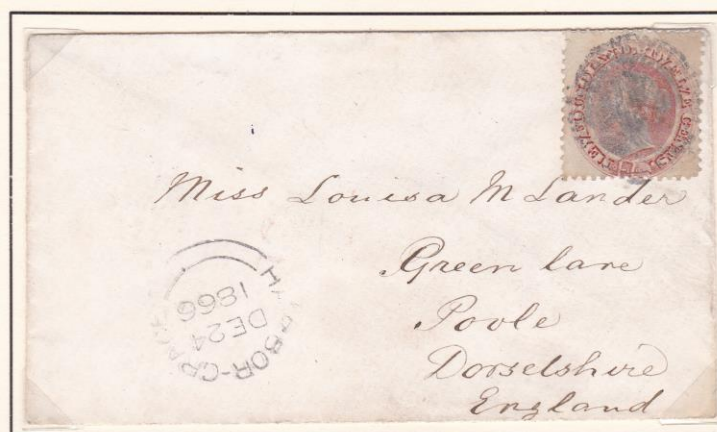 Miss Louisa M Lander
Green lane
Poole
Dorsetshire
England
HARBOR-GRACE
DE 24
1866